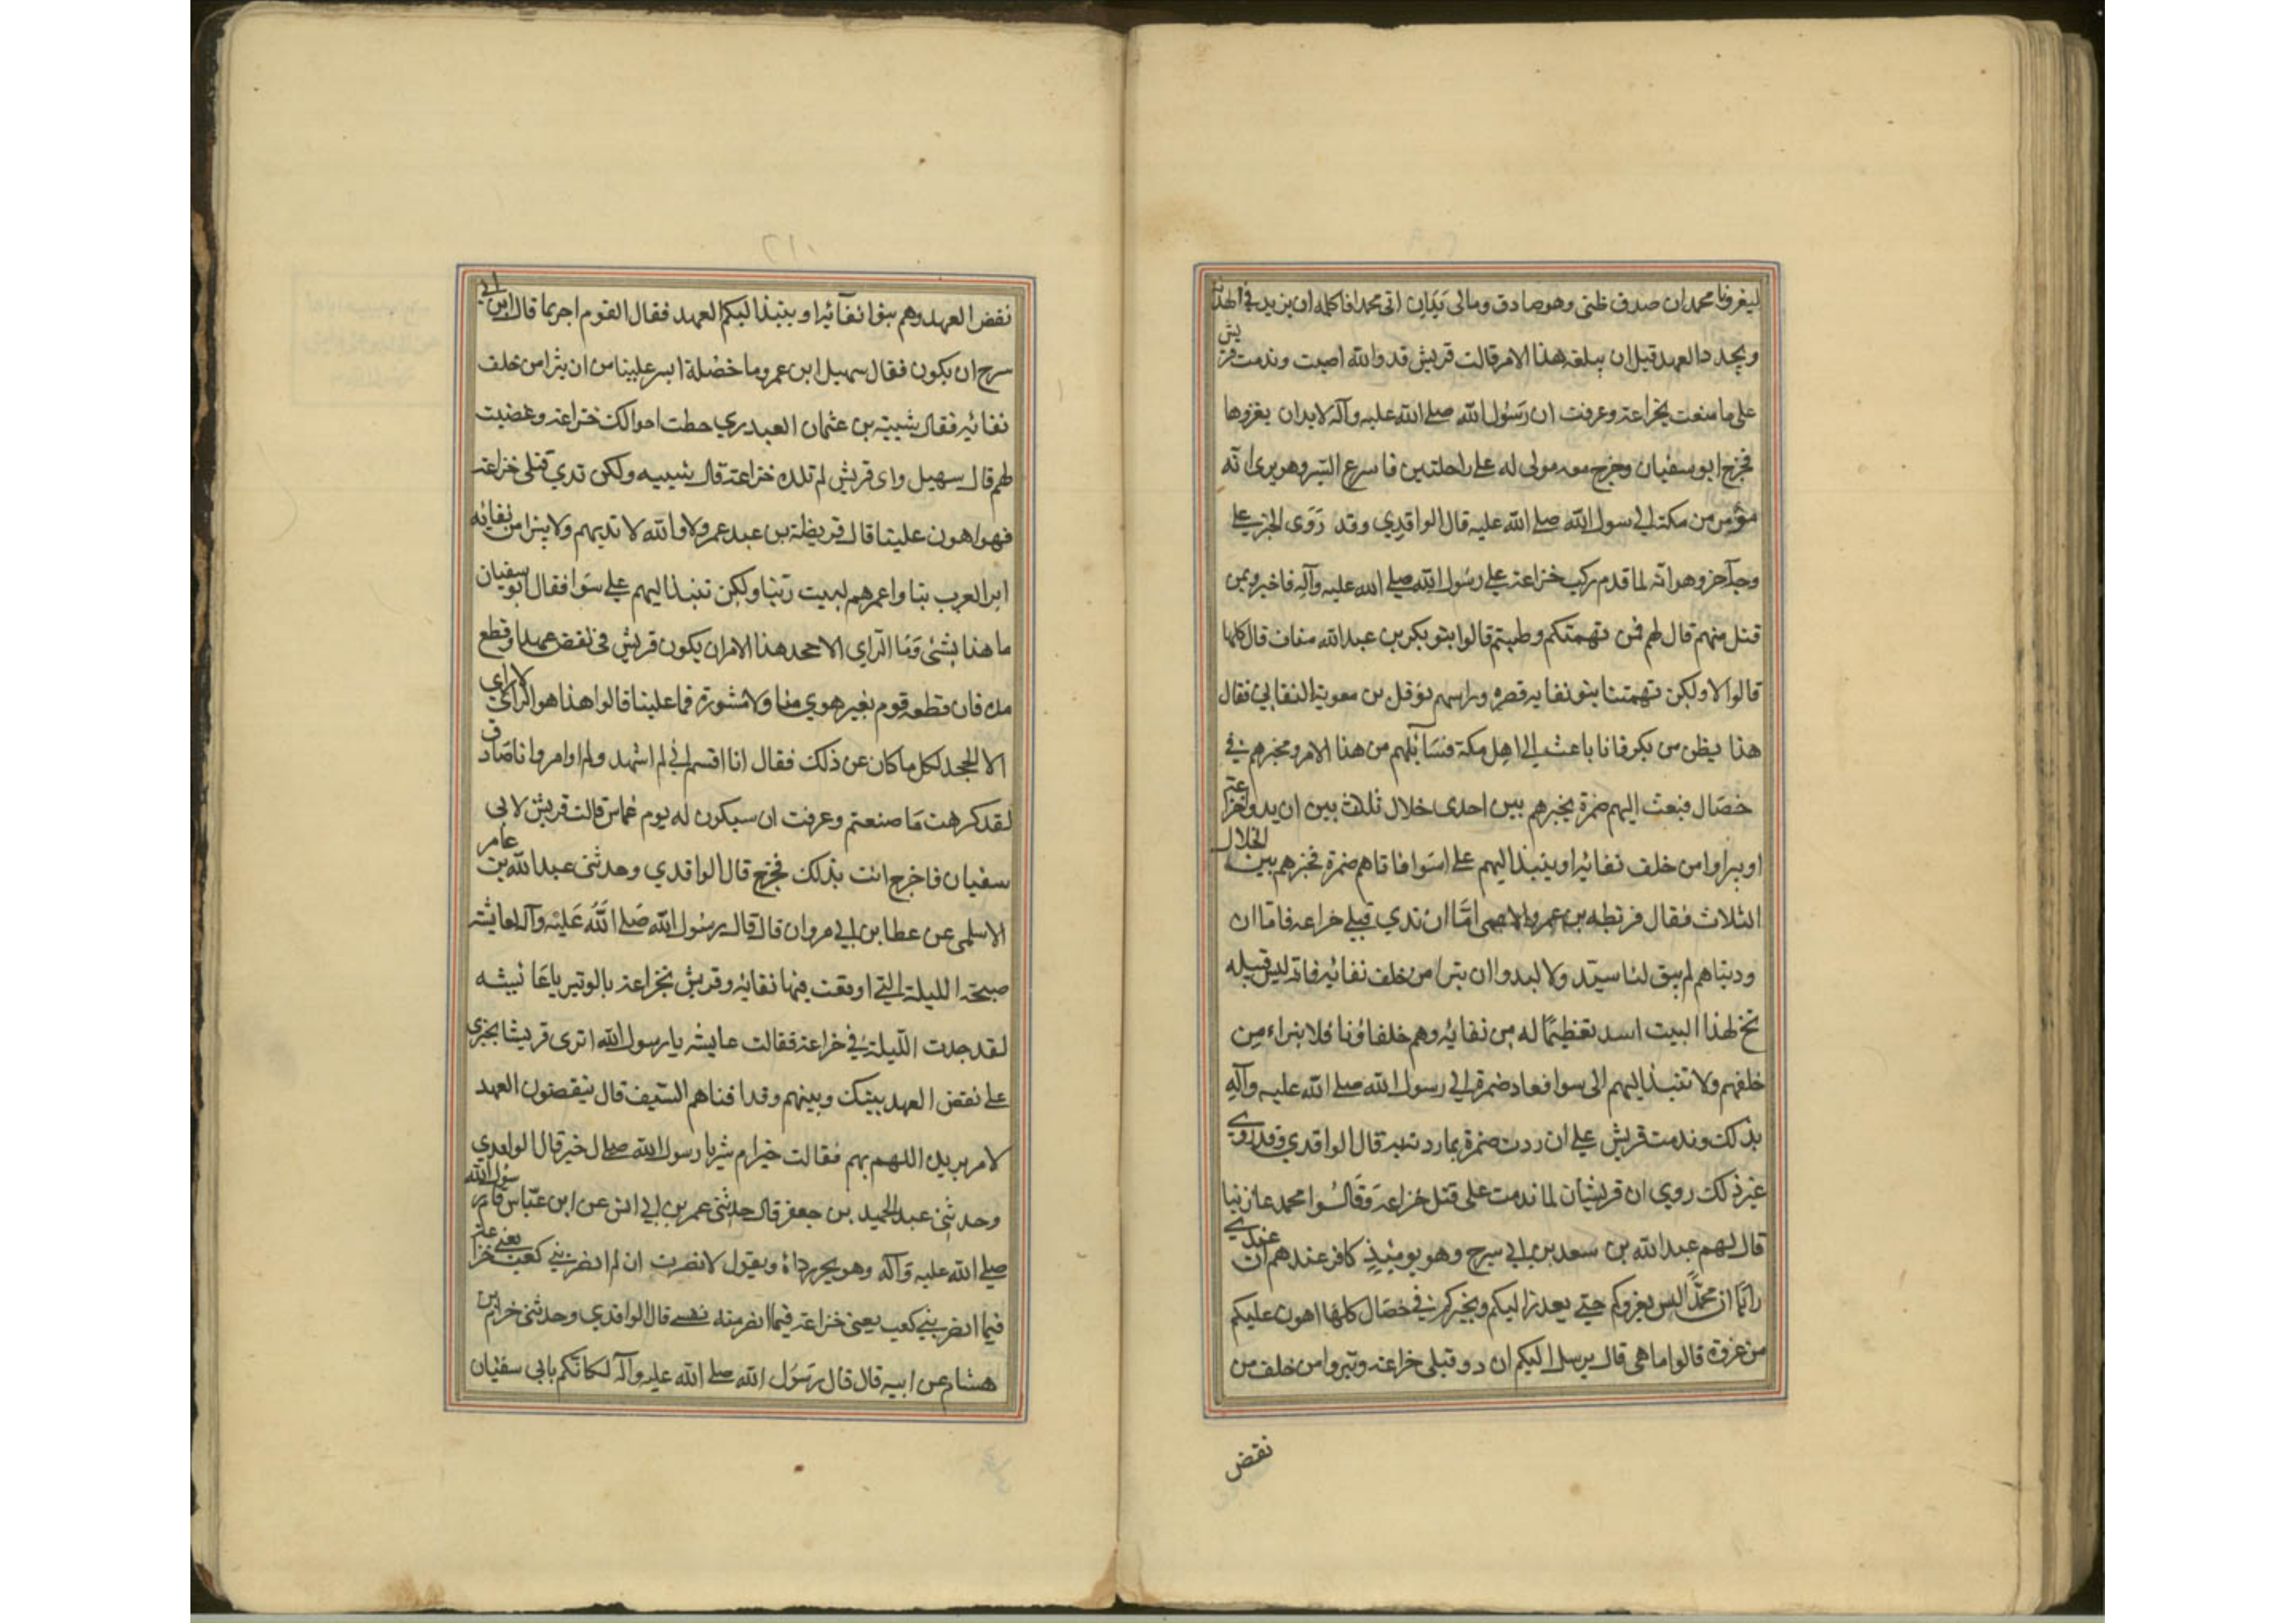 ليغرونا محمد ان صدق ظنى وهو صادق ومالى بدان اتى محمدا فاكلمه ان يزيد في الهدنة
ويجدد العهد قبل ان يبلغه هذا الامر قالت قريش قد والله اصبت وندمت قريش
على ما صنعت بخزاعة وعرفت ان رسول الله صلى الله عليه وآله لابد ان يغزوها
فخرج ابو سفيان وخرج معه مولى له على راحلتين فاسرع السير وهو يرى انه
من مكة الى رسول الله صلى الله عليه قال الواقدي وقد روى الخبر على
وجه آخر وهو انه لما قدم ركب خزاعة على رسول الله صلى الله عليه وآله فاخبروه بمن
قتل منهم قال لهم فمن تهمتكم وطيتم قالوا بنو بكر بن عبد الله مناف قال كلها
قالوا لا ولكن تهمتنا بنو نفايه قصره وراسهم نوفل بن معوية النفاثي فقال
هذا بطن من بكر فانا باعث الى اهل مكة فسائلهم من هذا الامر ومخبرهم في
خصال فبعث اليهم ضمرة يخبرهم بين احدى خلال ثلاث بين ان يدوا خزاعة
او يبراوا من خلف نفاثه او ينبذ اليهم على اسوا فاتاهم ضمرة فخبرهم بين الخلال
الثلاث فقال قرطه بن عمرو الاعمى اما ان ندي قتلى خزاعه فاما ان
وديناهم لم يبق لنا سبد ولا لبد واان نبرا من خلف نفاثه فانه ليس قبيله
تحج لهذا البيت اسد تعظيما له من نفايه وهم خلفاؤنا فلا نبراء من
خلفهم ولا تنبذ اليهم الى سوا فعاد ضمرة الى رسول الله صلى الله عليه وآله
بذلك وندمت قريش على ان ردت ضمرة بما ردته به قال الواقدي وقد روى
غير ذلك روي ان قريشان لما ندمت على قتل خزاعة وقالوا محمد غازينا
قال لهم عبد الله بن سعد بن ابي سرح وهو يومئذ كافر عندهم ان عندي
رايا ان محمدا ليس يغزوكم حتى يعدزاليكم ويخيركم في خصال كلها اهون عليكم
من غزوه قالوا ما هي قال يرسل اليكم ان دو قتلى خزاعه وتبروا من خلف من
نقض
نقض العهد وهم بنوا نفاثه او ينبذ اليكم العهد فقال القوم اجر بما قال ابن ابي
سرح ان يكون فقال سهيل ابن عمرو ما خصلة ايسر علينا من ان نبرا من خلف
نفائه فقال شيبة بن عثمان العبدري حطت اخوالك خزاعه وغضبت
لهم قال سهيل واي قريش لم تلده خزاعة قال شيبه ولكن ندي قتلى خزاعه
فهو اهون علينا قال قريظة بن عبد عمرو لا والله لا نديهم ولا نبرا من نفاثه
ابر العرب بنا واعمرهم لبيت ربنا ولكن ننبذ اليهم على سوا فقال ابو سفيان
ما هذا بشئ وما الراي الا جحد هذا الامر ان يكون قريش في نقض عهد او قطع
مده فان قطعه قوم بغير هوي منا ولا مشورة فما علينا قالوا هذا هو الراي لا راي
الا الجحد لكل ما كان عن ذلك فقال انا اقسم اني لم اشهد ولم اوامر وانا صادق
لقد كرهت ما صنعتم وعرفت ان سيكون له يوم غماس قالت قريش لابى
سفيان فاخرج انت بذلك فخرج قال الواقدي وحدثنى عبد الله بن عامر
الاسلمى عن عطا بن ابي مروان قال قال رسول الله صلى الله عليه وآله لعايشه
صبيحة الليلة التي اوقعت فيها نفاثه وقريش بخزاعة بالوتير ياعايشه
لقد حدث الليلة في خزاعة فقالت عايشه يا رسول الله اترى قريشا يجترى
على نقض العهد بينك وبينهم وقد افناهم السيف قال ينقضون العهد
لامر يريد اللهم بهم فقالت خيرام شر يا رسول الله صلى ل خير قال الواقدي
وحدثنى عبد الحميد بن جعفر قال حدثنى عمر بن ابي انس عن ابن عباس قام رسول الله
صلى الله عليه وآله وهو يجر رداه ويقول لانصرت ان لم انصر بني كعب يعني خزاعة
فيما انصر بني كعب يعنى خزاعة فيما انصر منه نفسي قال الواقدي وحدثنى خرام بن
هشام عن ابيه قال قال رسول الله صلى الله عليه وآله لكانكم بابى سفيان